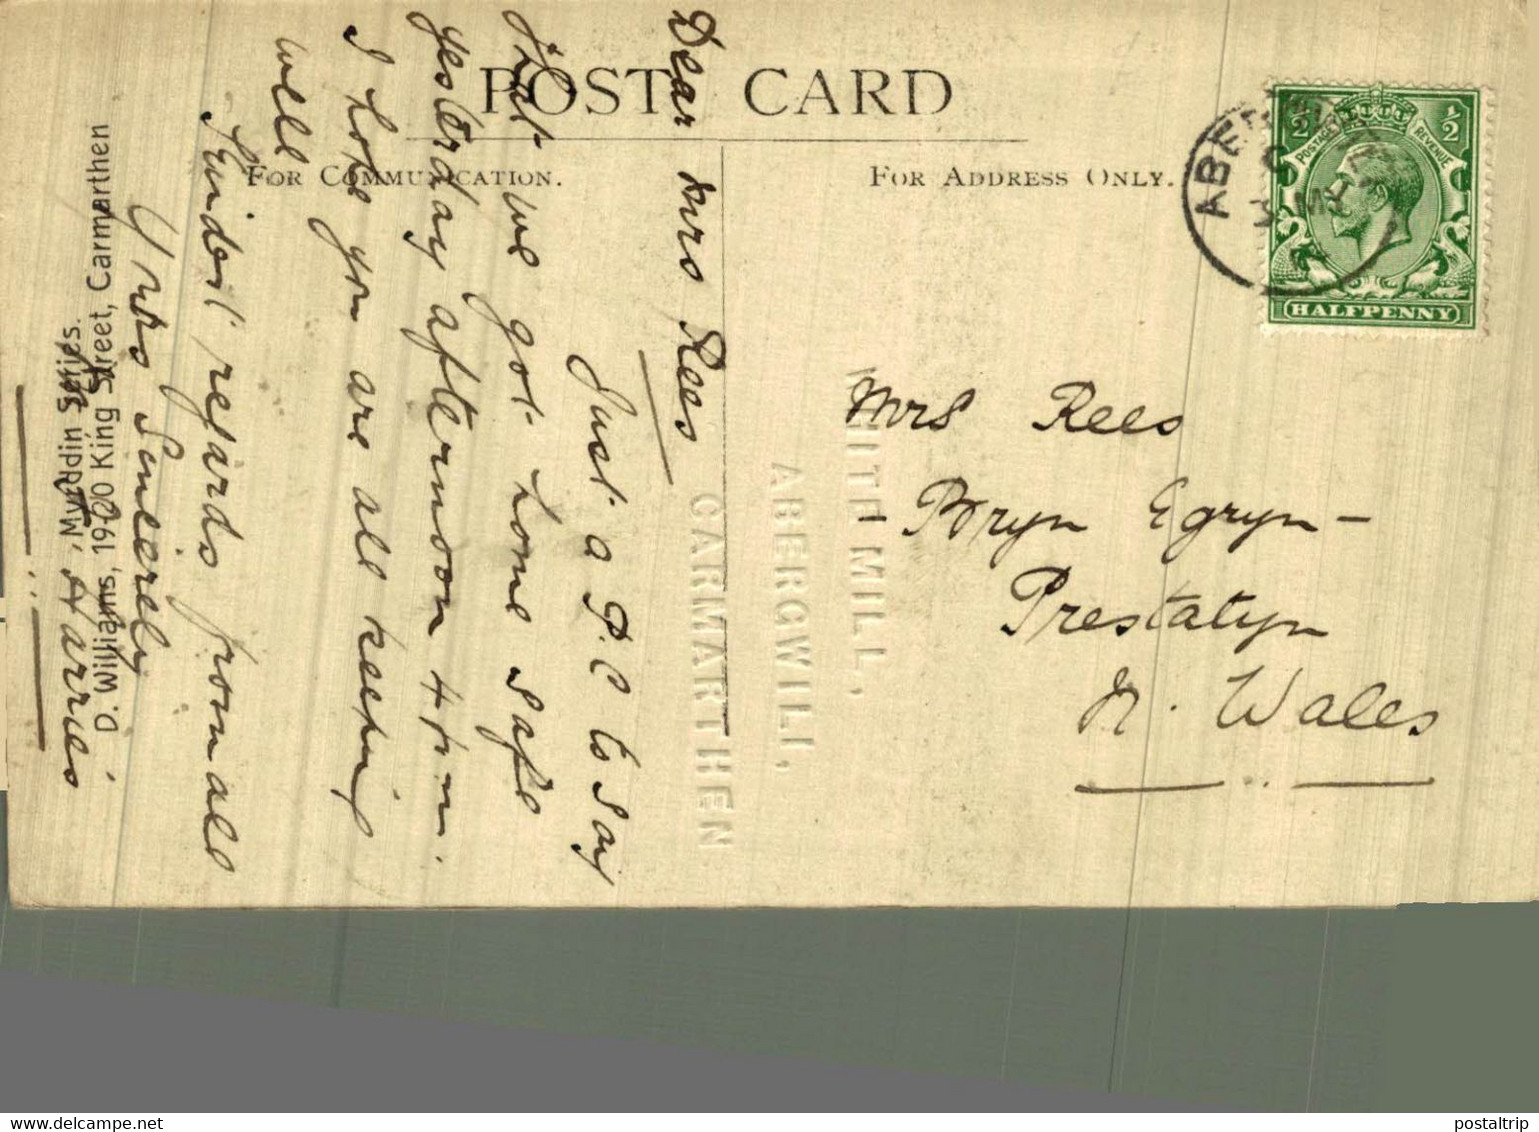 POST CARD
FOR COMMUNICATION.
FOR ADDRESS ONLY.
POSTAGE REVENUE
1/2 1/2
HALFPENNY
Dear Mrs Rees
Just a P.C to Say
that we got home safe
yesterday afternoon 4 pm.
I hope you are all keeping
well
Kindest regards from all
Yours Sincerely
Harries
Mrs Rees
- Bryn Egryn -
Prestatyn
N. Wales
WHITE MILL,
ABERGWILI,
CARMARTHEN
'Myrddin Series.'
D. Williams, King Street, Carmarthen
delcampe.net
postaltrip